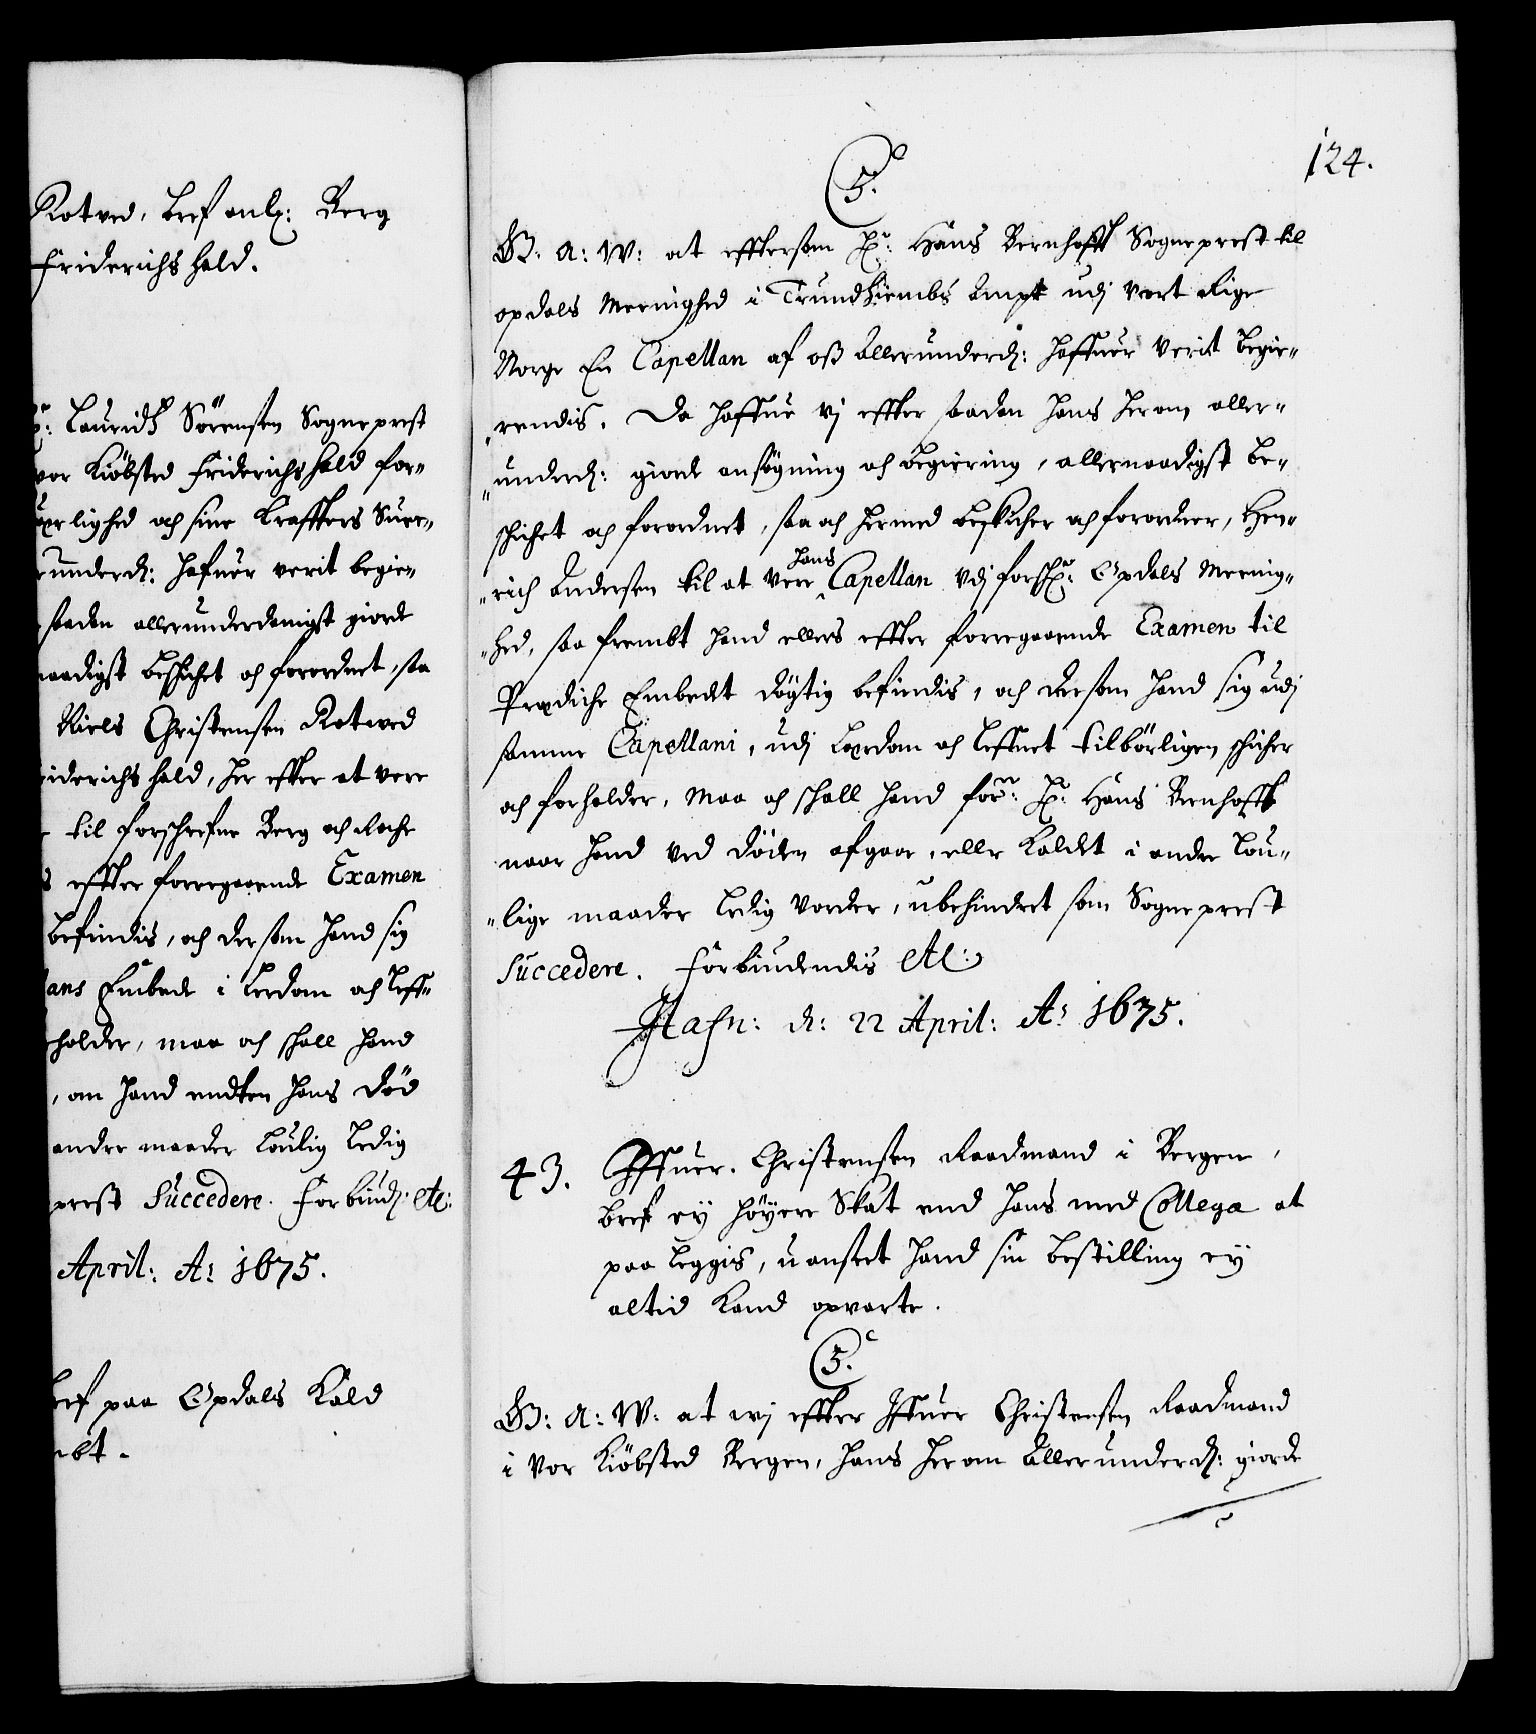 Rotved, bref anl: Berg
Friderichshald.
Hr: Lauridtz Sörensen Sogneprest
vor Kiöbsted Friderichshald for-
lighed och sine Kreffters Suec-
underd: hafuer verit begie-
saadan allerunderdanigst giorde
naadigst beskichet och forordnet, saa
Niels Christensen Rotwed
iderichshald, her effter at vere
til forschrefne Berg och Rache
effter foregaaende Examen
befindis, och dersom hand sig
ans Embede i Lerdom och Leff-
holder, maa och schall hand
, om hand endten hans död
andre maader loulig ledig
prest Succedere. Forbiud: etc:
April: Ao 1675.
bref paa Opdals Kald
bt.
124.
C 5.
G: A: W: at effterson Hr: Hans Bernhofft Sogneprest til
opdals Meenighed i Trundhiembs Ampt udj vort Rige
Norge En Capellan af oß Allerunderd: haffuer verit begie-
"rendis. Da haffue vj effter saadan hans herom aller-
"underd: giorde ansögning och begiering, allernaadigst be-
schichet och forordnet, saa och hermed beskicher och forordner, Hen-
"rich Andersen til at vere hans Capellan vdj forschr: Opdals Meenig-
"hed, saa frembt hand ellers effter foregaaende Examen til
Prædiche Embedet dögtig befindis, och dersom hand sig udj
samme Capellani, udj Lærdom och Leffnet tilbörligen schicher
och forholder, maa och schall hand forne: Hr: Hans Bernhofft
naar hand ved döden afgaar, eller Kaldet i andre lou-
"lige maader ledig vorder, ubehindret som Sogneprest
Succedere. Forbiudendis etc:
Hafn: d: 22 April: Ao 1675.
43. Iffuer Christensen Raadmand i Bergen,
bref ey höyere Skat end hans med Collega at
paa leggis, uanseet hand sin bestilling ey
altid kand opvarte.
C 5.
G: A: W: at wj effter Iffuer Christensen Raadmand
i vor Kiöbsted Bergen, hans herom Allerunderd: giorde